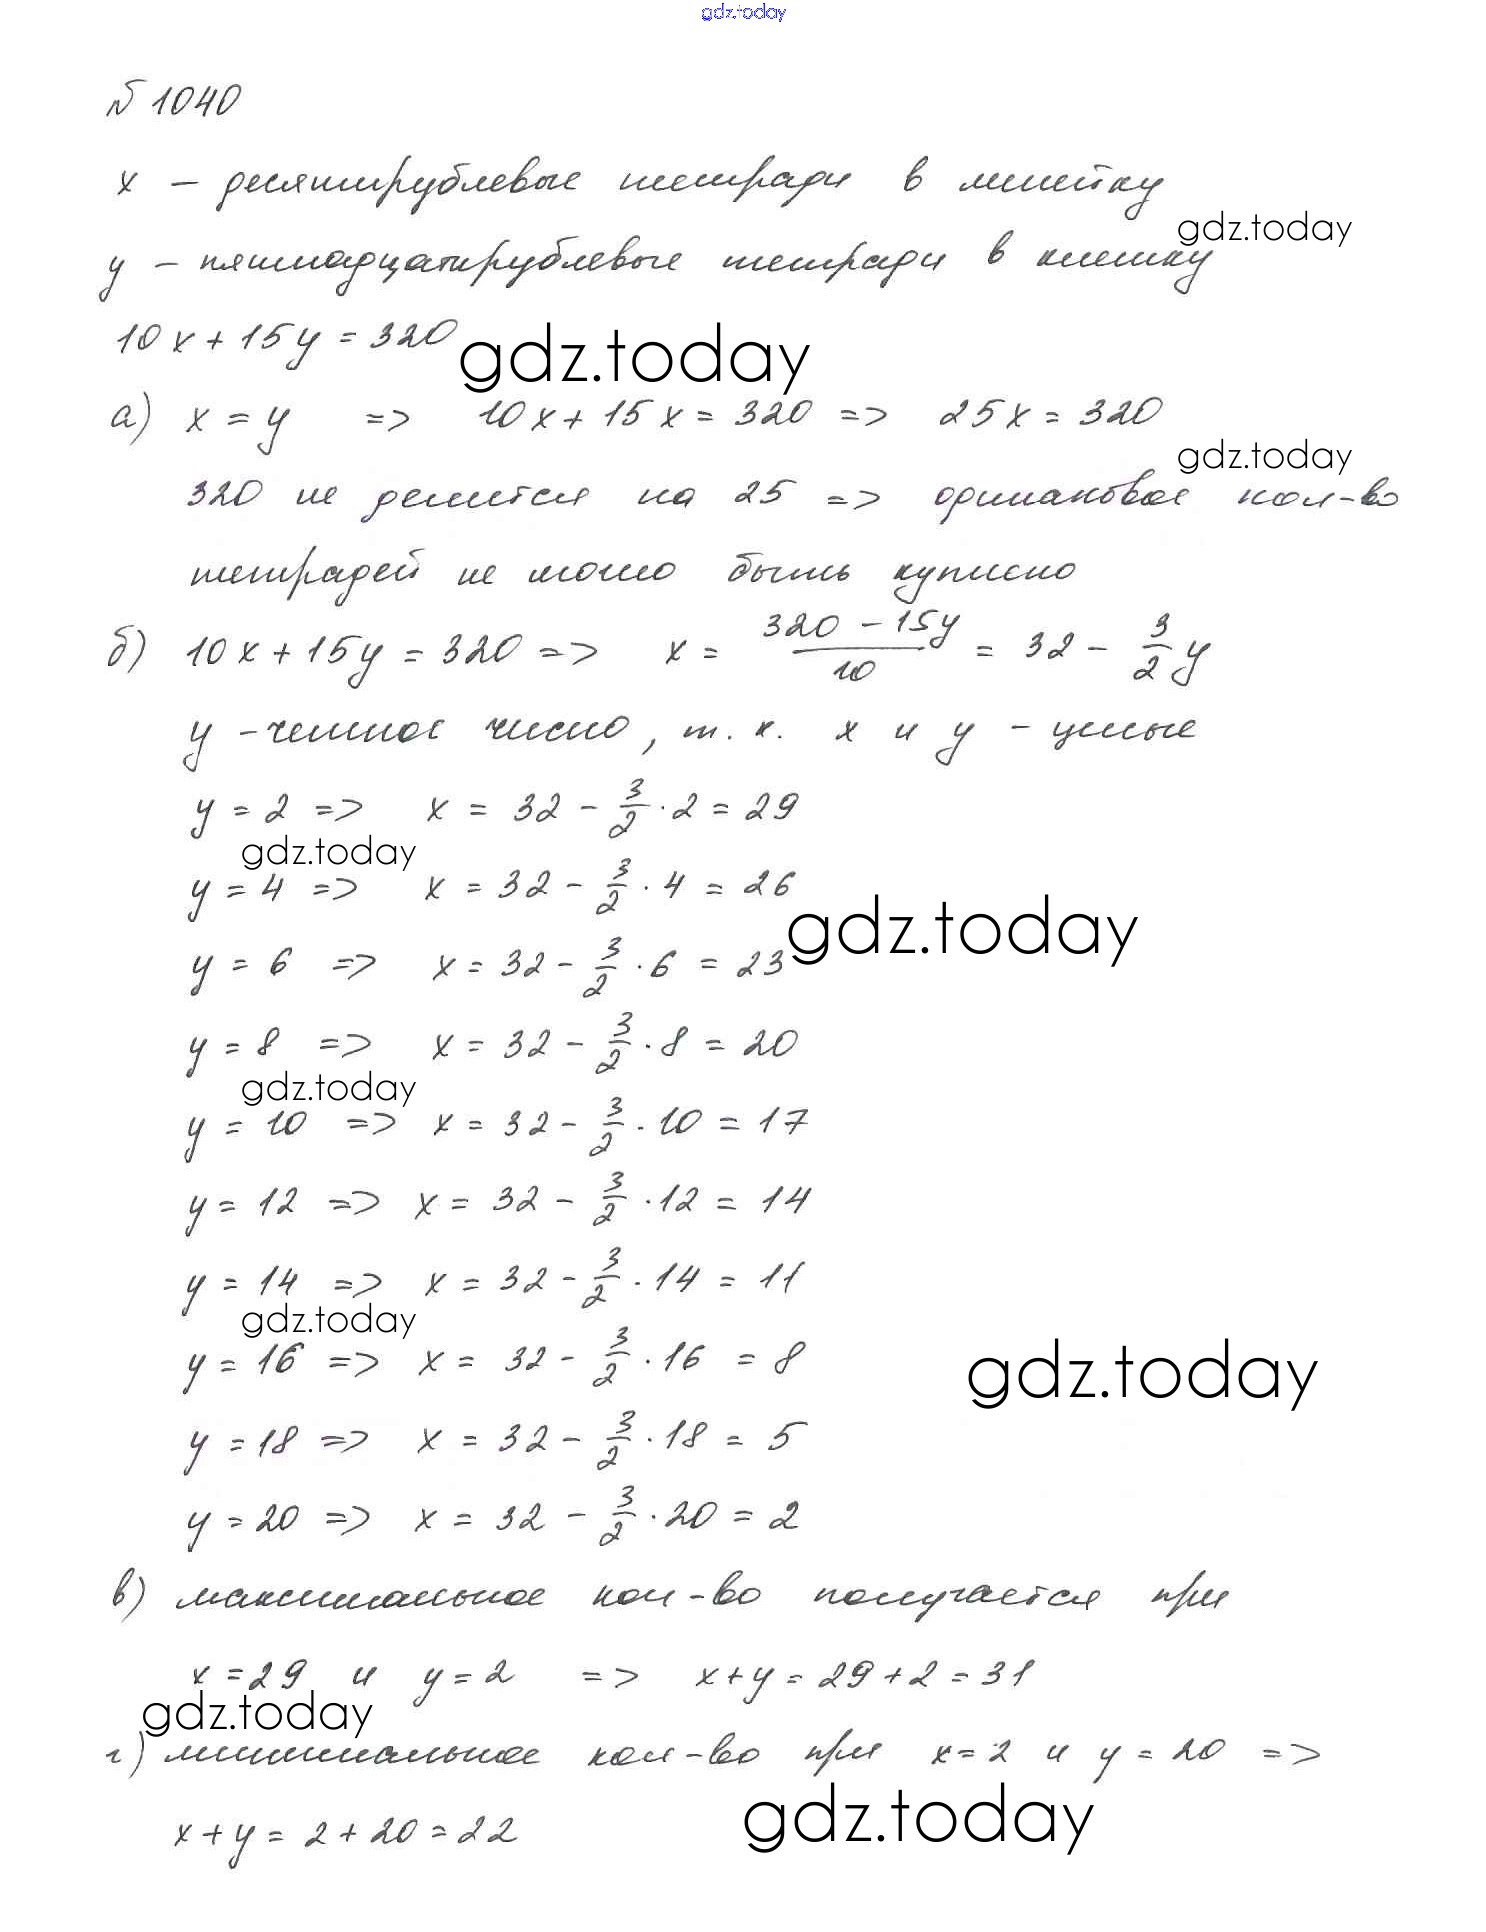 gdz.today
№ 1040
x – десятирублевые тетради в линейку
gdz.today
y – пятнадцатирублевые тетради в клетку
10x + 15y = 320
gdz.today
а) x = y => 10x + 15x = 320 => 25x = 320
gdz.today
320 не делится на 25 => одинаковое кол-во
тетрадей не могло быть куплено
б) 10x + 15y = 320 => x = (320 – 15y)/10 = 32 – 3/2 y
y – четное число, т. к. x и y – целые
y = 2 => x = 32 – 3/2 · 2 = 29
gdz.today
y = 4 => x = 32 – 3/2 · 4 = 26
gdz.today
y = 6 => x = 32 – 3/2 · 6 = 23
y = 8 => x = 32 – 3/2 · 8 = 20
gdz.today
y = 10 => x = 32 – 3/2 · 10 = 17
y = 12 => x = 32 – 3/2 · 12 = 14
y = 14 => x = 32 – 3/2 · 14 = 11
gdz.today
y = 16 => x = 32 – 3/2 · 16 = 8
gdz.today
y = 18 => x = 32 – 3/2 · 18 = 5
y = 20 => x = 32 – 3/2 · 20 = 2
в) максимальное кол-во получается при
x = 29 и y = 2 => x + y = 29 + 2 = 31
gdz.today
г) минимальное кол-во при x = 2 и y = 20 =>
gdz.today
x + y = 2 + 20 = 22